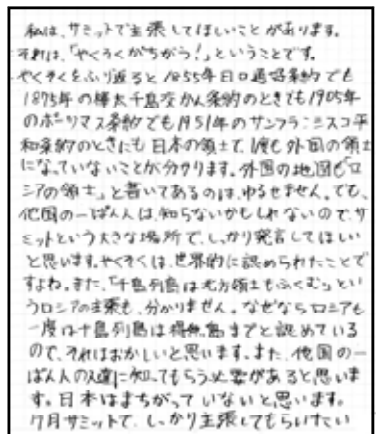 私は、サミットで主張してほしいことがあります。
それは、「やくそくがちがう!」ということです。
やくそくをふり返ると1855年日ロ通好条約でも
1875年の樺太千島交かん条約のときでも1905年
のポーツマス条約でも1951年のサンフランシスコ平
和条約のときにも日本の領土で、1度も外国の領土
になっていないことが分かります。外国の地図も「ロ
シアの領土」と書いてあるのは、ゆるせません。でも、
他国の一ぱん人は、知らないかもしれないので、サ
ミットという大きな場所で、しっかり発言してほしい
と思います。やくそくは、世界的に認められたことで
すよね。また、「千島列島は北方領土もふくむ」とい
うロシアの主張も、分かりません。なぜならロシアも
一度は千島列島は得撫島までと認めている
ので、それはおかしいと思います。また、他国の一
ぱん人の人達に知ってもらう必要があると思いま
す。日本はまちがっていないと思います。
7月サミットで、しっかり主張してもらいたい